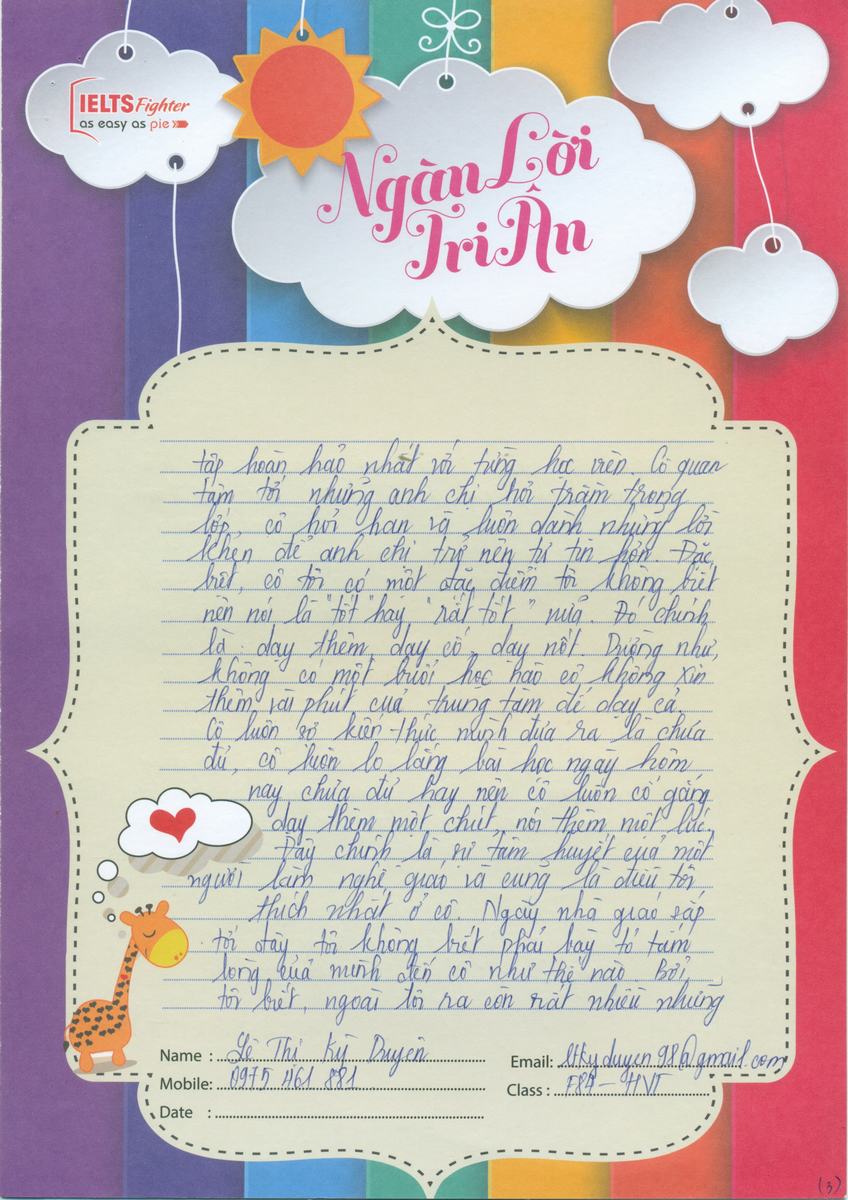 IELTS Fighter
as easy as pie
Ngàn Lời
Tri Ân
tập hoàn hảo nhất với từng học viên. Cô quan
tâm tới những anh chị hơi trầm trong
lớp, cô hỏi han và luôn dành những lời
khen để anh chị trở nên tự tin hơn. Đặc
biệt, cô tôi có một đặc điểm tôi không biết
nên nói là "tốt" hay "rất tốt" nữa. Đó chính
là: dạy thêm, dạy cố, dạy nốt. Dường như,
không có một buổi học nào cô không xin
thêm vài phút của trung tâm để dạy cả.
Cô luôn sợ kiến thức mình đưa ra là chưa
đủ, cô luôn lo lắng bài học ngày hôm
nay chưa đủ hay nên cô luôn cố gắng
dạy thêm một chút, nói thêm một lúc.
Đây chính là sự tâm huyết của một
người làm nghề giáo và cũng là điều tôi
thích nhất ở cô. Ngày nhà giáo sắp
tới đây tôi không biết phải bày tỏ tấm
lòng của mình đến cô như thế nào. Bởi,
tôi biết, ngoài tôi ra còn rất nhiều những
Name : Lê Thị Kỳ Duyên
Email: ltkyduyen98@gmail.com
Mobile: 0975 461 881
Class : F84 - HVT
Date :
(3)